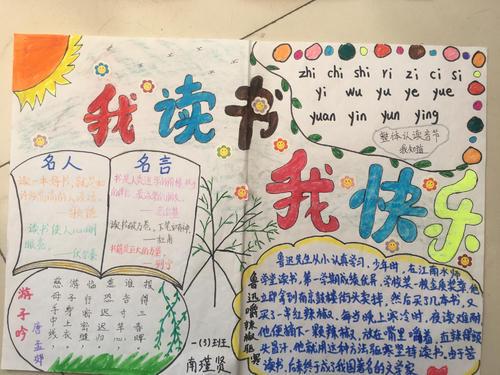 我读书
我快乐
zhi chi shi ri zi ci si
yi wu yu ye yue
yuan yin yun ying
整体认读音节
我知道
名人 名言
读一本好书，就是和
许多高尚的人谈话。
——歌德
读书使人心明
眼亮。
——伏尔泰
书是人类进步的阶梯，
——高尔基
读书破万卷，下笔如有神。
——杜甫
书籍是巨大的力量。
——列宁
游子吟
唐 孟郊
慈母手中线，
游子身上衣。
临行密密缝，
意恐迟迟归。
谁言寸草心，
报得三春晖。
一(3)班
南瑾贤
鲁迅嚼辣椒驱寒
鲁迅先生从小认真学习，少年时，在江南水师
学堂读书，第一学期成绩优异，学校奖一枚金质奖章，他
立即拿到南京鼓楼街头卖掉，然后买了几本书，又
买了一串红辣椒，每当晚上寒冷时，夜读难耐
他便摘下一颗辣椒，放在嘴里嚼着，直辣得额
头冒汗，他就用这种方法驱寒坚持读书，由于苦
读书，后来终于成了我国著名的文学家